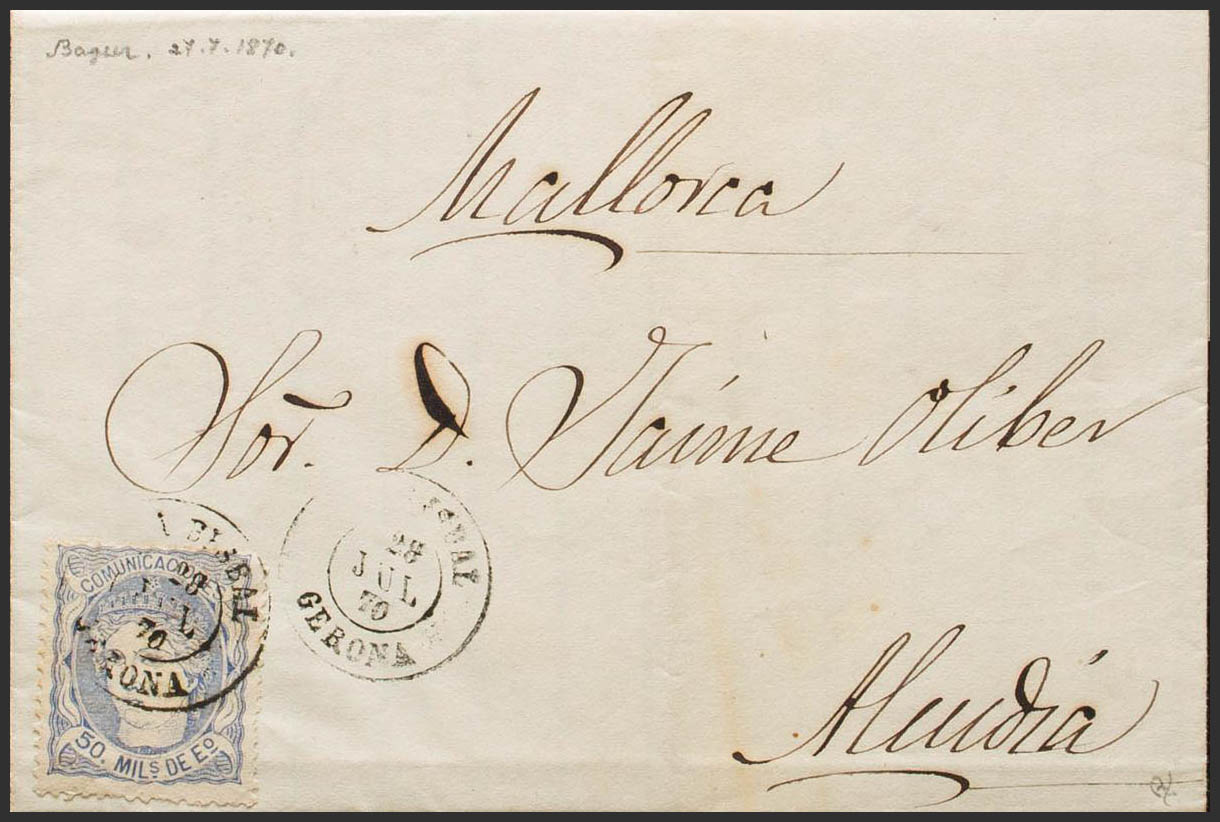 Bagur. 27.7.1870.
Mallorca
Sor. D. Jaime Oliber
A BISBAL
28
JUL
70
GERONA
ISBAL
28
JUL
70
GERONA
COMUNICACIONES
50. MILS. DE Eo.
Alcudiá